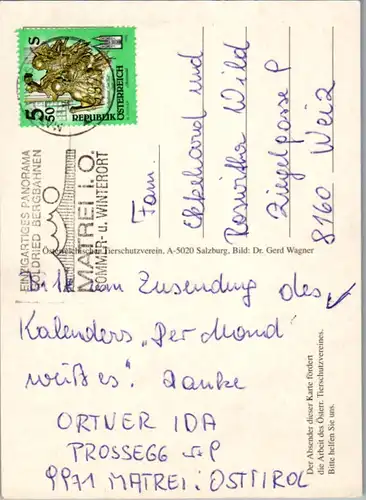 5 50
S
REPUBLIK ÖSTERREICH
EINZIGARTIGES PANORAMA
GOLDRIED BERGBAHNEN
MATREI i.O.
SOMMER- u. WINTERORT
Fam.
Ekkehard und
Roswitha Wild
Ziegelgasse
8160 Weiz
Österreichischer Tierschutzverein, A-5020 Salzburg, Bild: Dr. Gerd Wagner
Bitte um Zusendung des
Kalenders „Der Mond
weiß es". Danke
ORTNER IDA
PROSSEGG
9971 MATREI i. OSTTIROL
Der Absender dieser Karte fördert
die Arbeit des Österr. Tierschutzvereines.
Bitte helfen Sie uns.